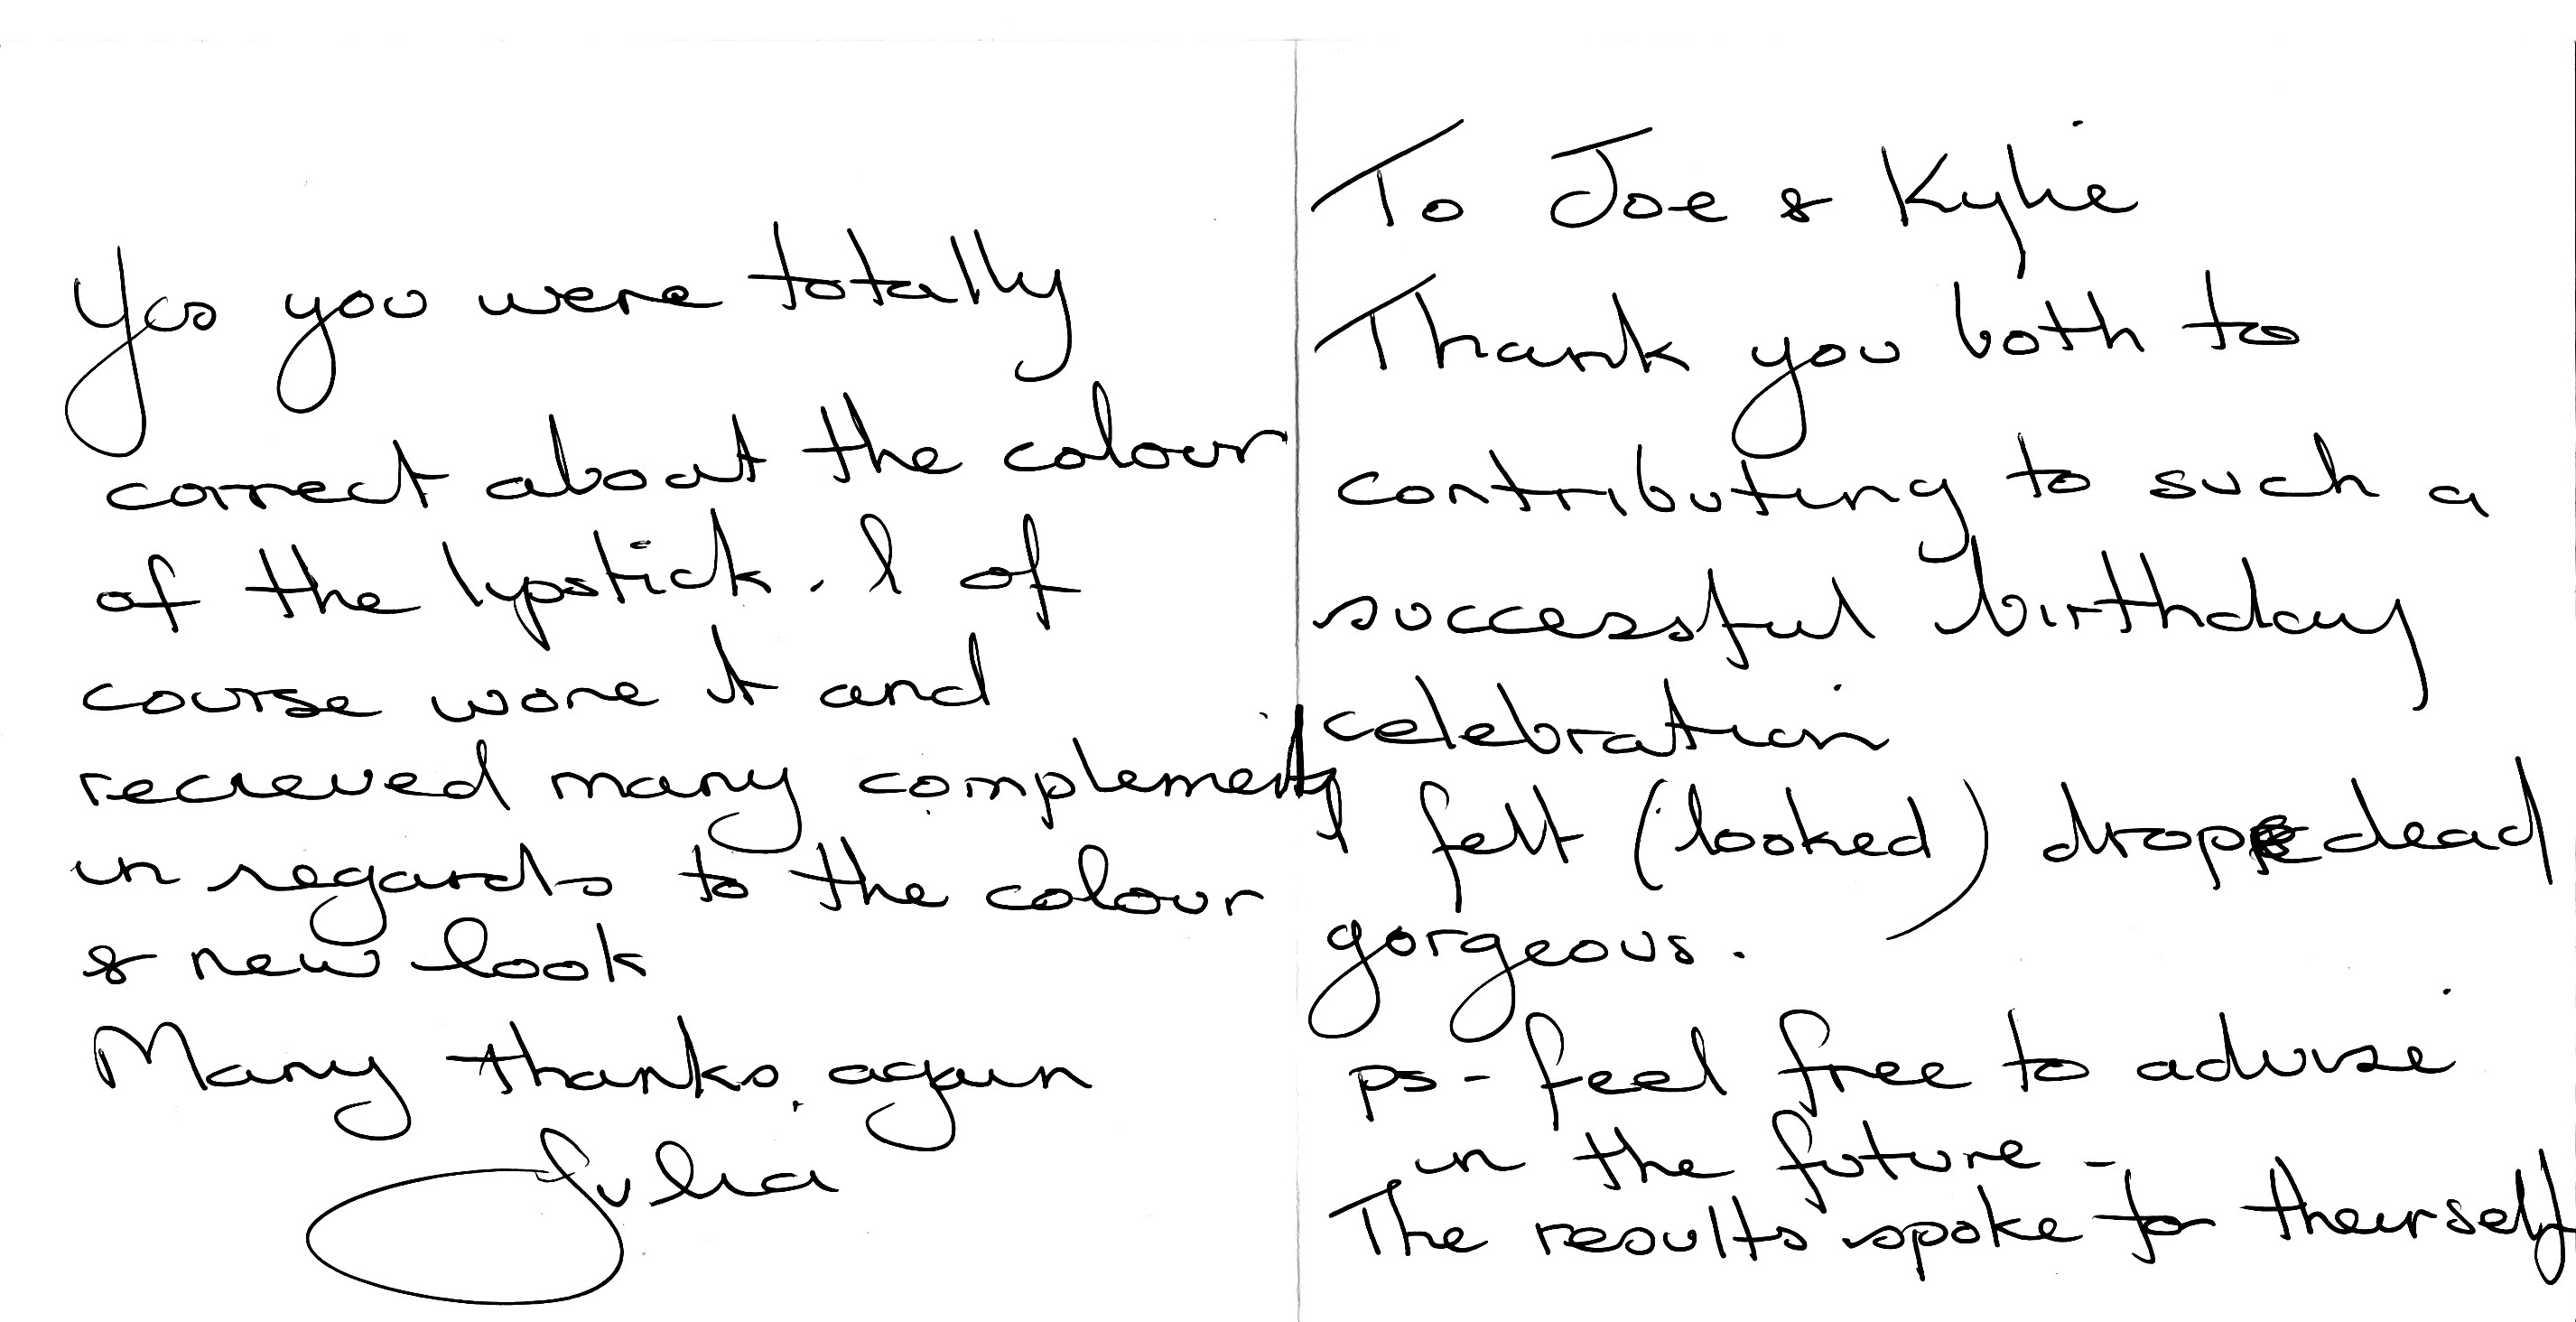 Yes you were totally
correct about the colour
of the lypstick. I of
course wore it and
recieved many complements
in regards to the colour
& new look
Many thanks again
Julia
To Joe & Kylie
Thank you both to
contributing to such a
successful birthday
celebration
I felt (looked) drop dead
gorgeous.
ps - feel free to advise
in the future -
The results spoke for theirself